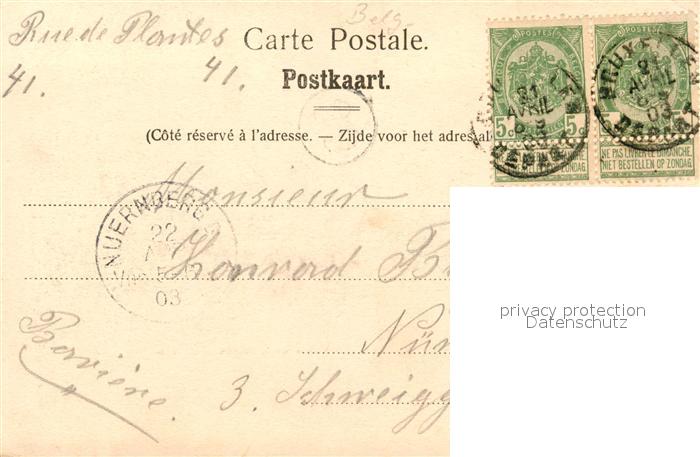 Belg.
Rue de Plantes
41. 41.
Carte Postale.
Postkaart.
(Côté réservé à l'adresse. — Zijde voor het adres al
POSTES POSTES
5c 5c 5c
NE PAS LIVRER LE DIMANCHE
NIET BESTELLEN OP ZONDAG
NE PAS LIVRER LE DIMANCHE
NIET BESTELLEN OP ZONDAG
BRUXELLES
21
AVRIL
03
DEPART
Monsieur
NUERNBERG
22
03
Konrad B
Nür
Bavière.
3. Schweigg
privacy protection
Datenschutz